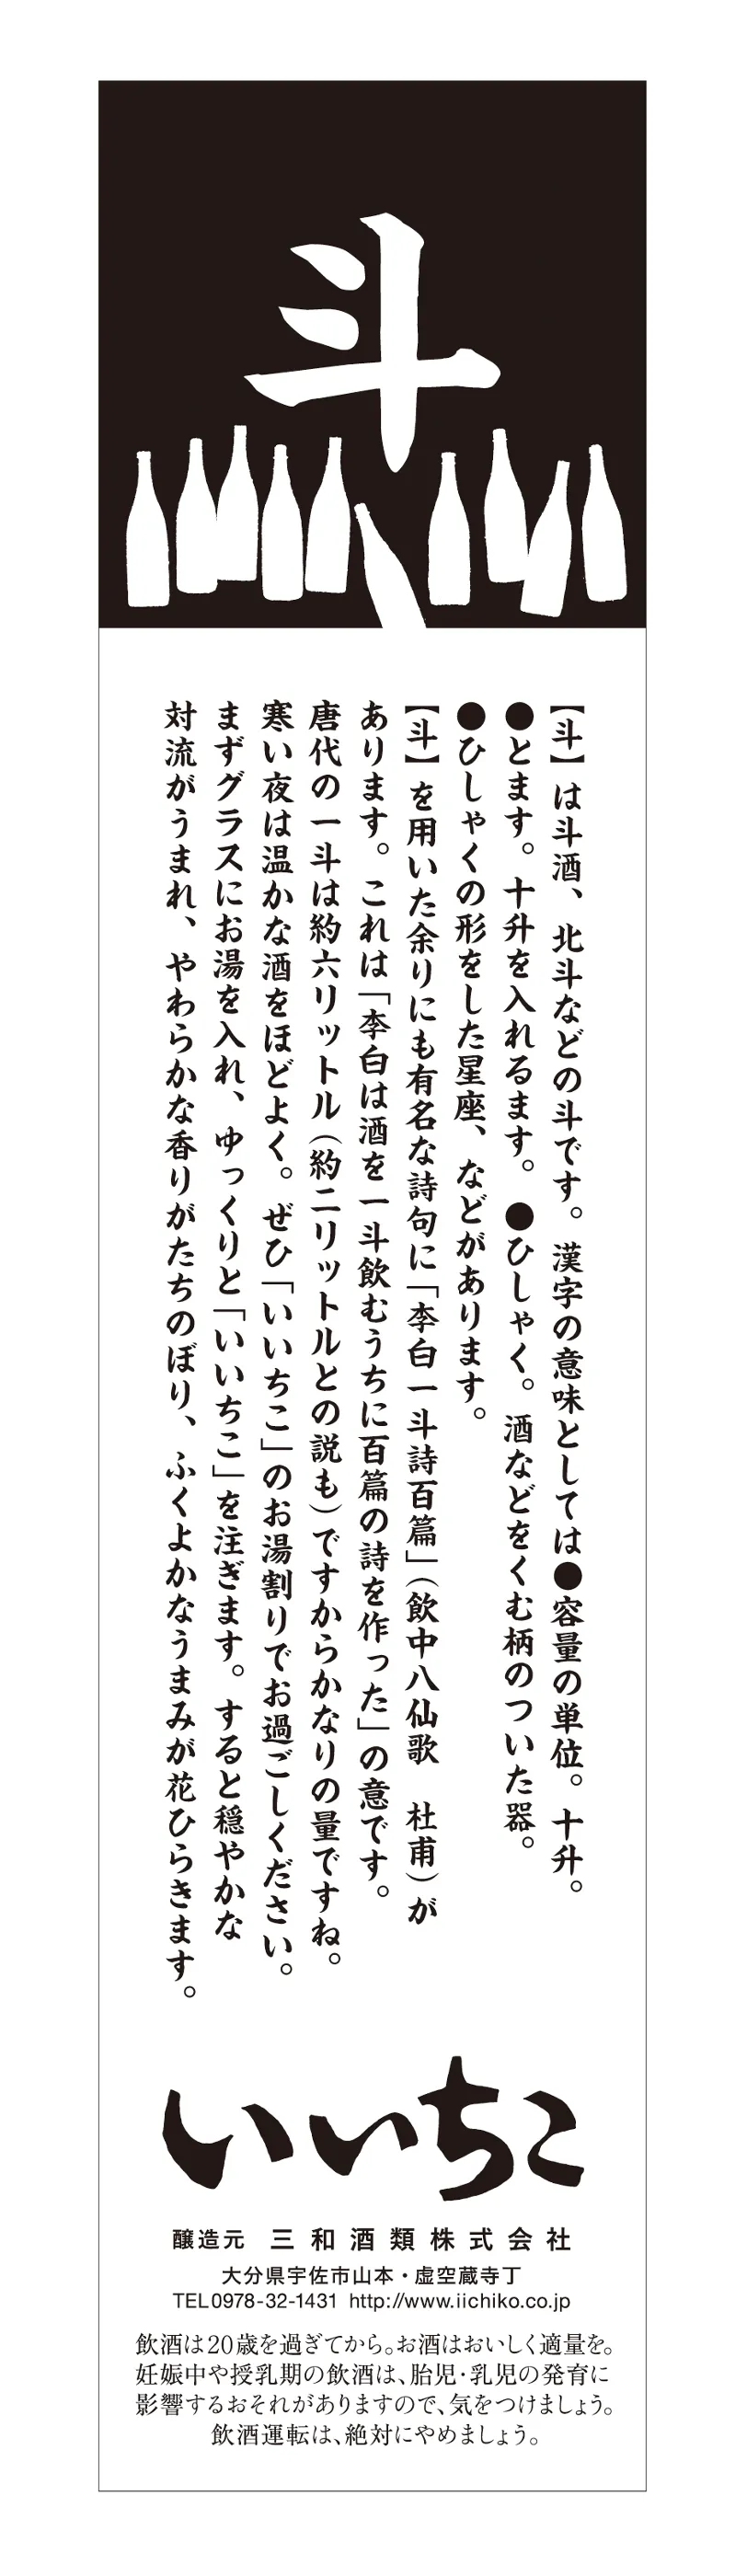 斗
【斗】は斗酒、北斗などの斗です。漢字の意味としては●容量の単位。十升。
●とます。十升を入れるます。●ひしゃく。酒などをくむ柄のついた器。
●ひしゃくの形をした星座、などがあります。
【斗】を用いた余りにも有名な詩句に「李白一斗詩百篇」（飲中八仙歌　杜甫）が
あります。これは「李白は酒を一斗飲むうちに百篇の詩を作った」の意です。
唐代の一斗は約六リットル（約二リットルとの説も）ですからかなりの量ですね。
寒い夜は温かな酒をほどよく。ぜひ「いいちこ」のお湯割りでお過ごしください。
まずグラスにお湯を入れ、ゆっくりと「いいちこ」を注ぎます。すると穏やかな
対流がうまれ、やわらかな香りがたちのぼり、ふくよかなうまみが花ひらきます。
いいちこ
醸造元 三和酒類株式会社
大分県宇佐市山本・虚空蔵寺丁
TEL0978-32-1431 http://www.iichiko.co.jp
飲酒は20歳を過ぎてから。お酒はおいしく適量を。
妊娠中や授乳期の飲酒は、胎児・乳児の発育に
影響するおそれがありますので、気をつけましょう。
飲酒運転は、絶対にやめましょう。